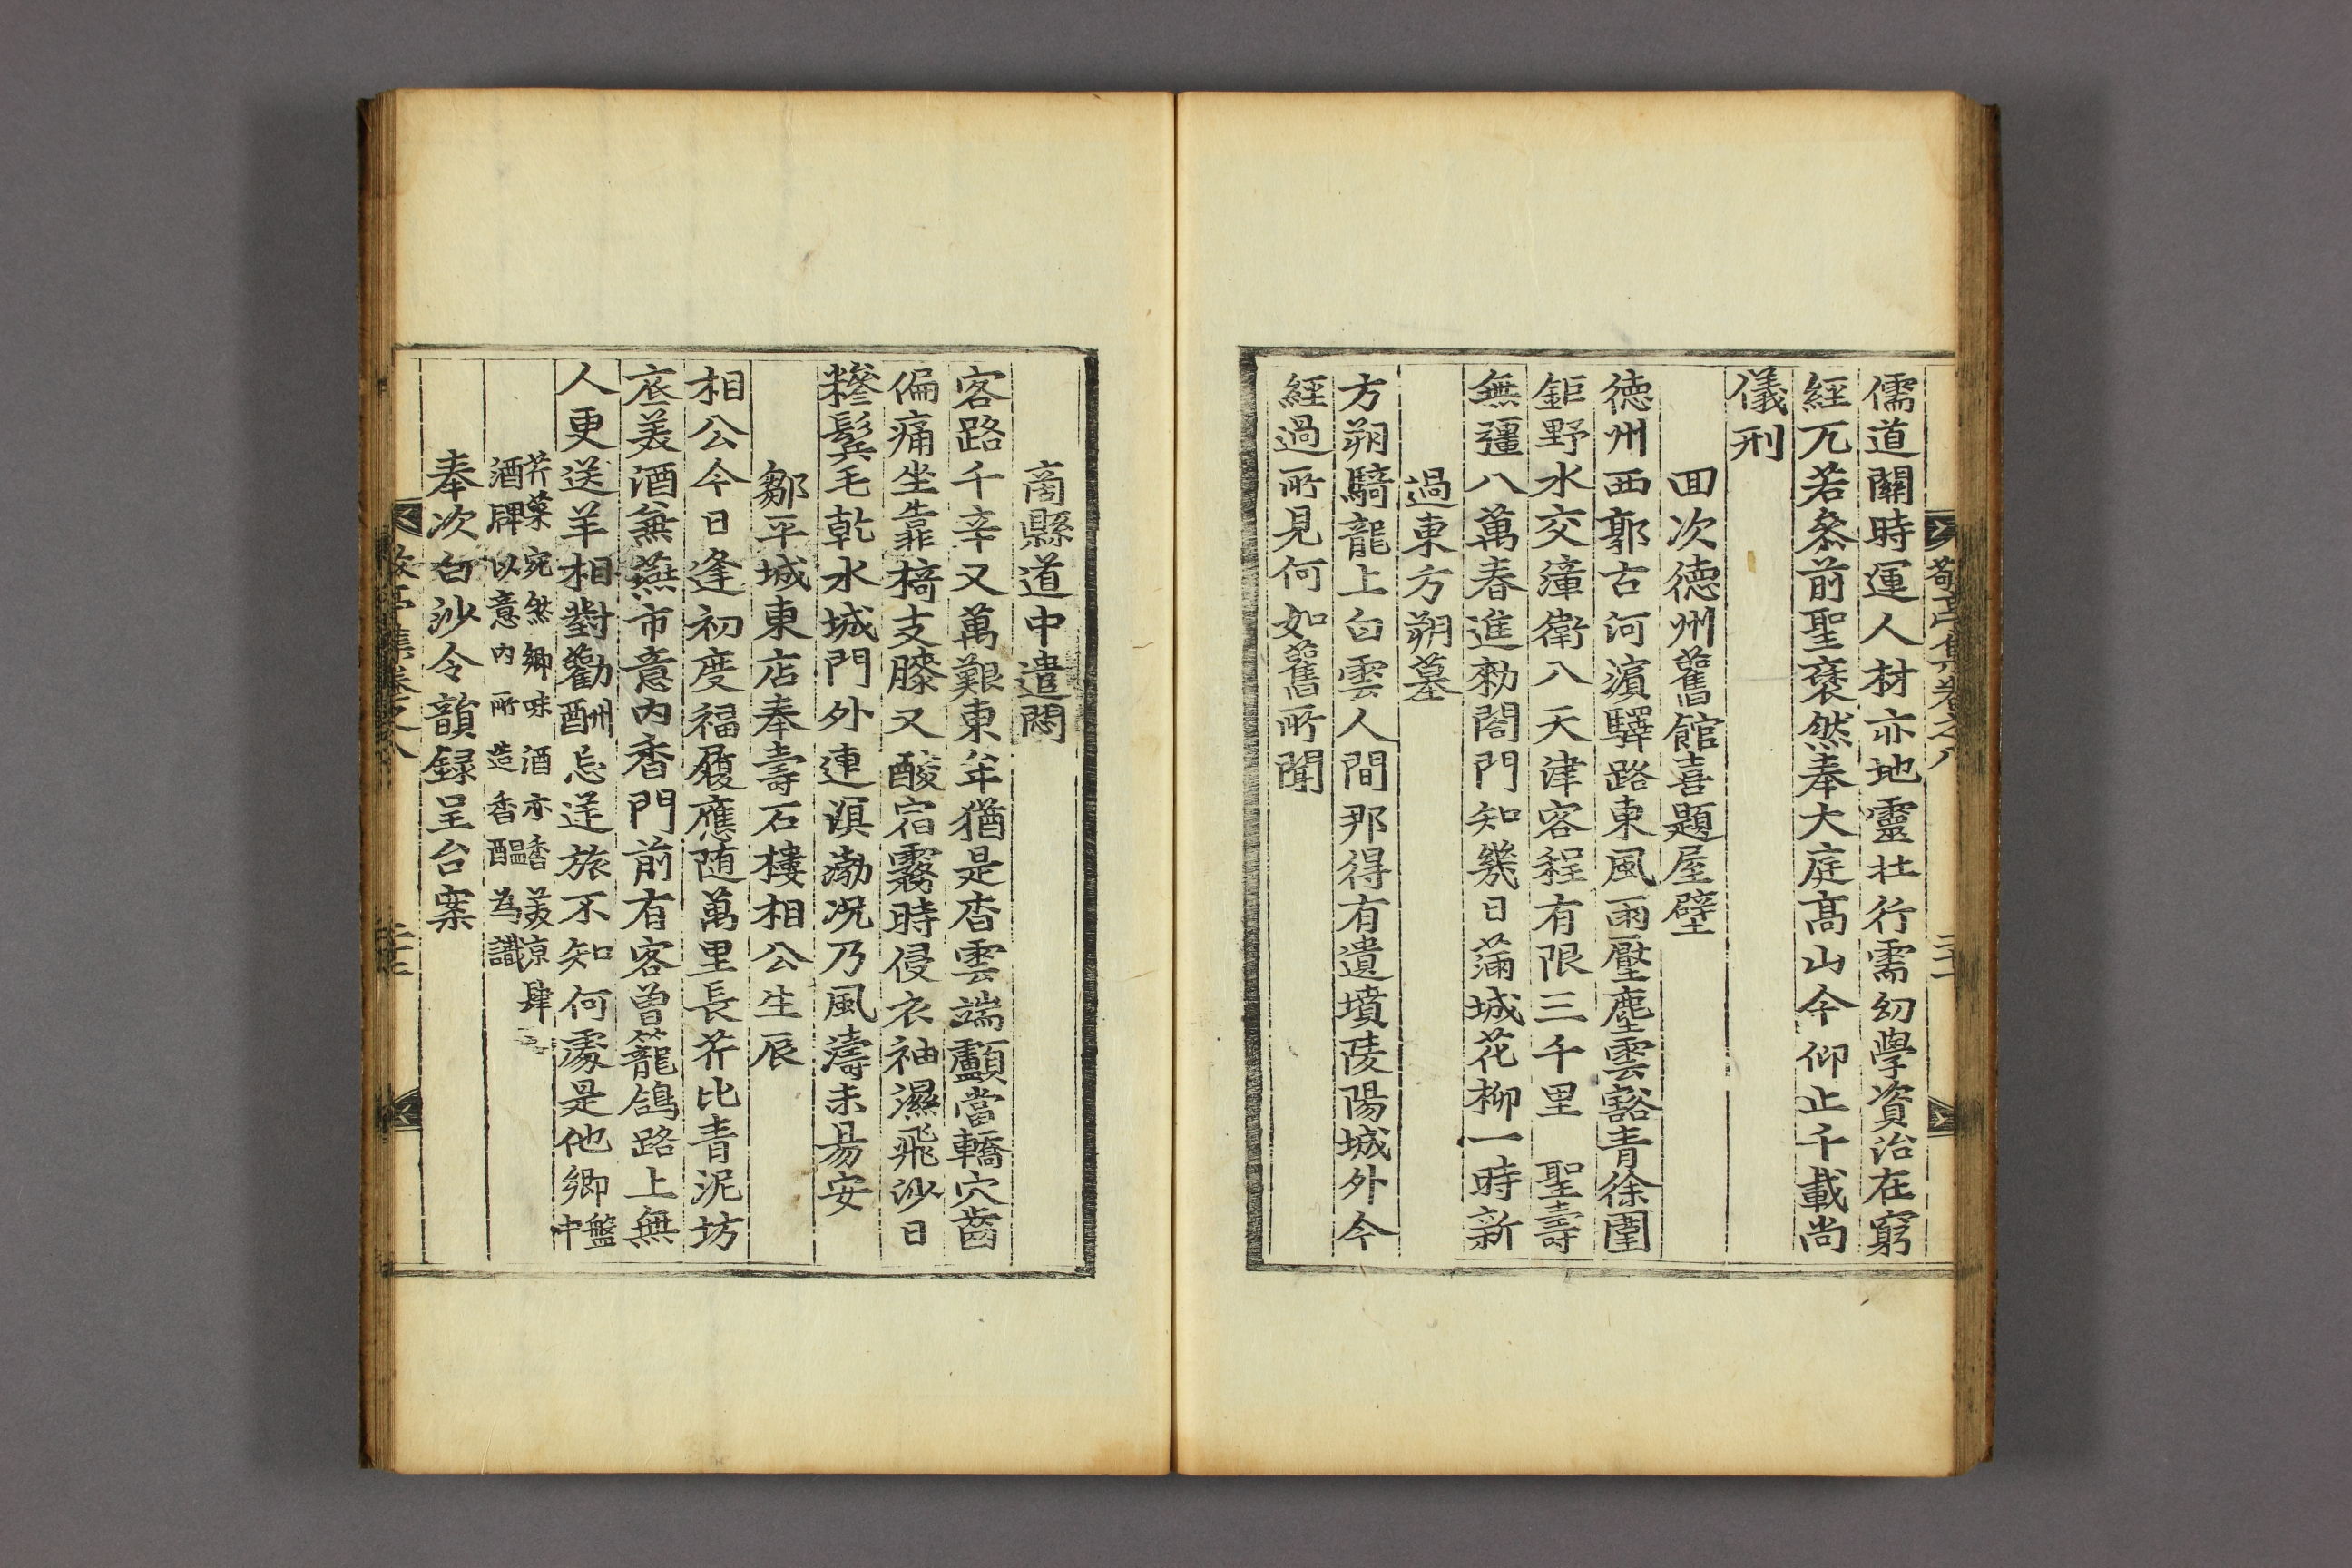 敬亭集卷之八
儒道關時運人材亦地靈壯行需幻學資治在窮
經兀若叅前聖褎然奉大庭高山今仰止千載尚
儀刑
回次德州舊館喜題屋壁
德州西郭古河濵驛路東風雨壓塵雲豁青徐圍
鉅野水交漳衛八天津客程有限三千里 聖壽
無彊八萬春進勑閤門知幾日蒲城花柳一時新
過東方朔墓
方朔騎龍上白雲人間那得有遺墳陵陽城外今
經過所見何如舊所聞
啇縣道中遣悶
客路千辛又萬艱東牟猶是杳雲端顱當轎穴齒
偏痛坐靠椅支膝又酸宿霧時侵衣袖濕飛沙日
糝鬂毛乾水城門外連溟渤况乃風濤未易安
鄒平城東店奉壽石樓相公生辰
相公今日逢初度福履應随萬里長芥比青泥坊
底美酒無燕市意內香門前有客曾籠鴿路上無
人更送羊相對勸酬忘逆旅不知何處是他鄉盤中
芥菜宛然鄉味酒亦香美京肆
酒牌以意內所造香醖為識
奉次白沙令韻録呈台案
敬亭集卷之八